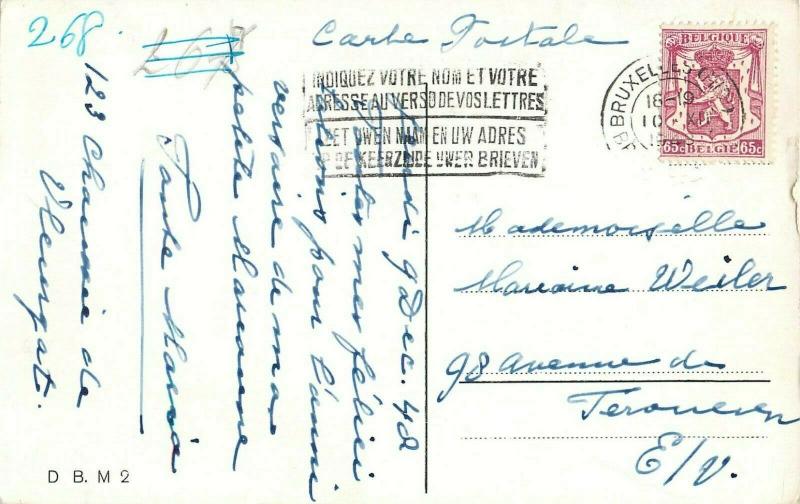 268
267
Carte Postale
BELGIQUE
65c BELGIË 65c
BRUXELLES
18-19
10 X
INDIQUEZ VOTRE NOM ET VOTRE
ADRESSE AU VERSO DE VOS LETTRES
ZET UWEN NAAM EN UW ADRES
OP DE KEERZIJDE UWER BRIEVEN
Jeudi 9 Dec. 48
mes félici
tations pour l'anni
versaire de ma
petite Marianne
Tante Maria
123 Chaussée de
Vleurgat.
Mademoiselle
Marianne Weiler
98 Avenue de
Tervueren
E/V.
D B. M 2